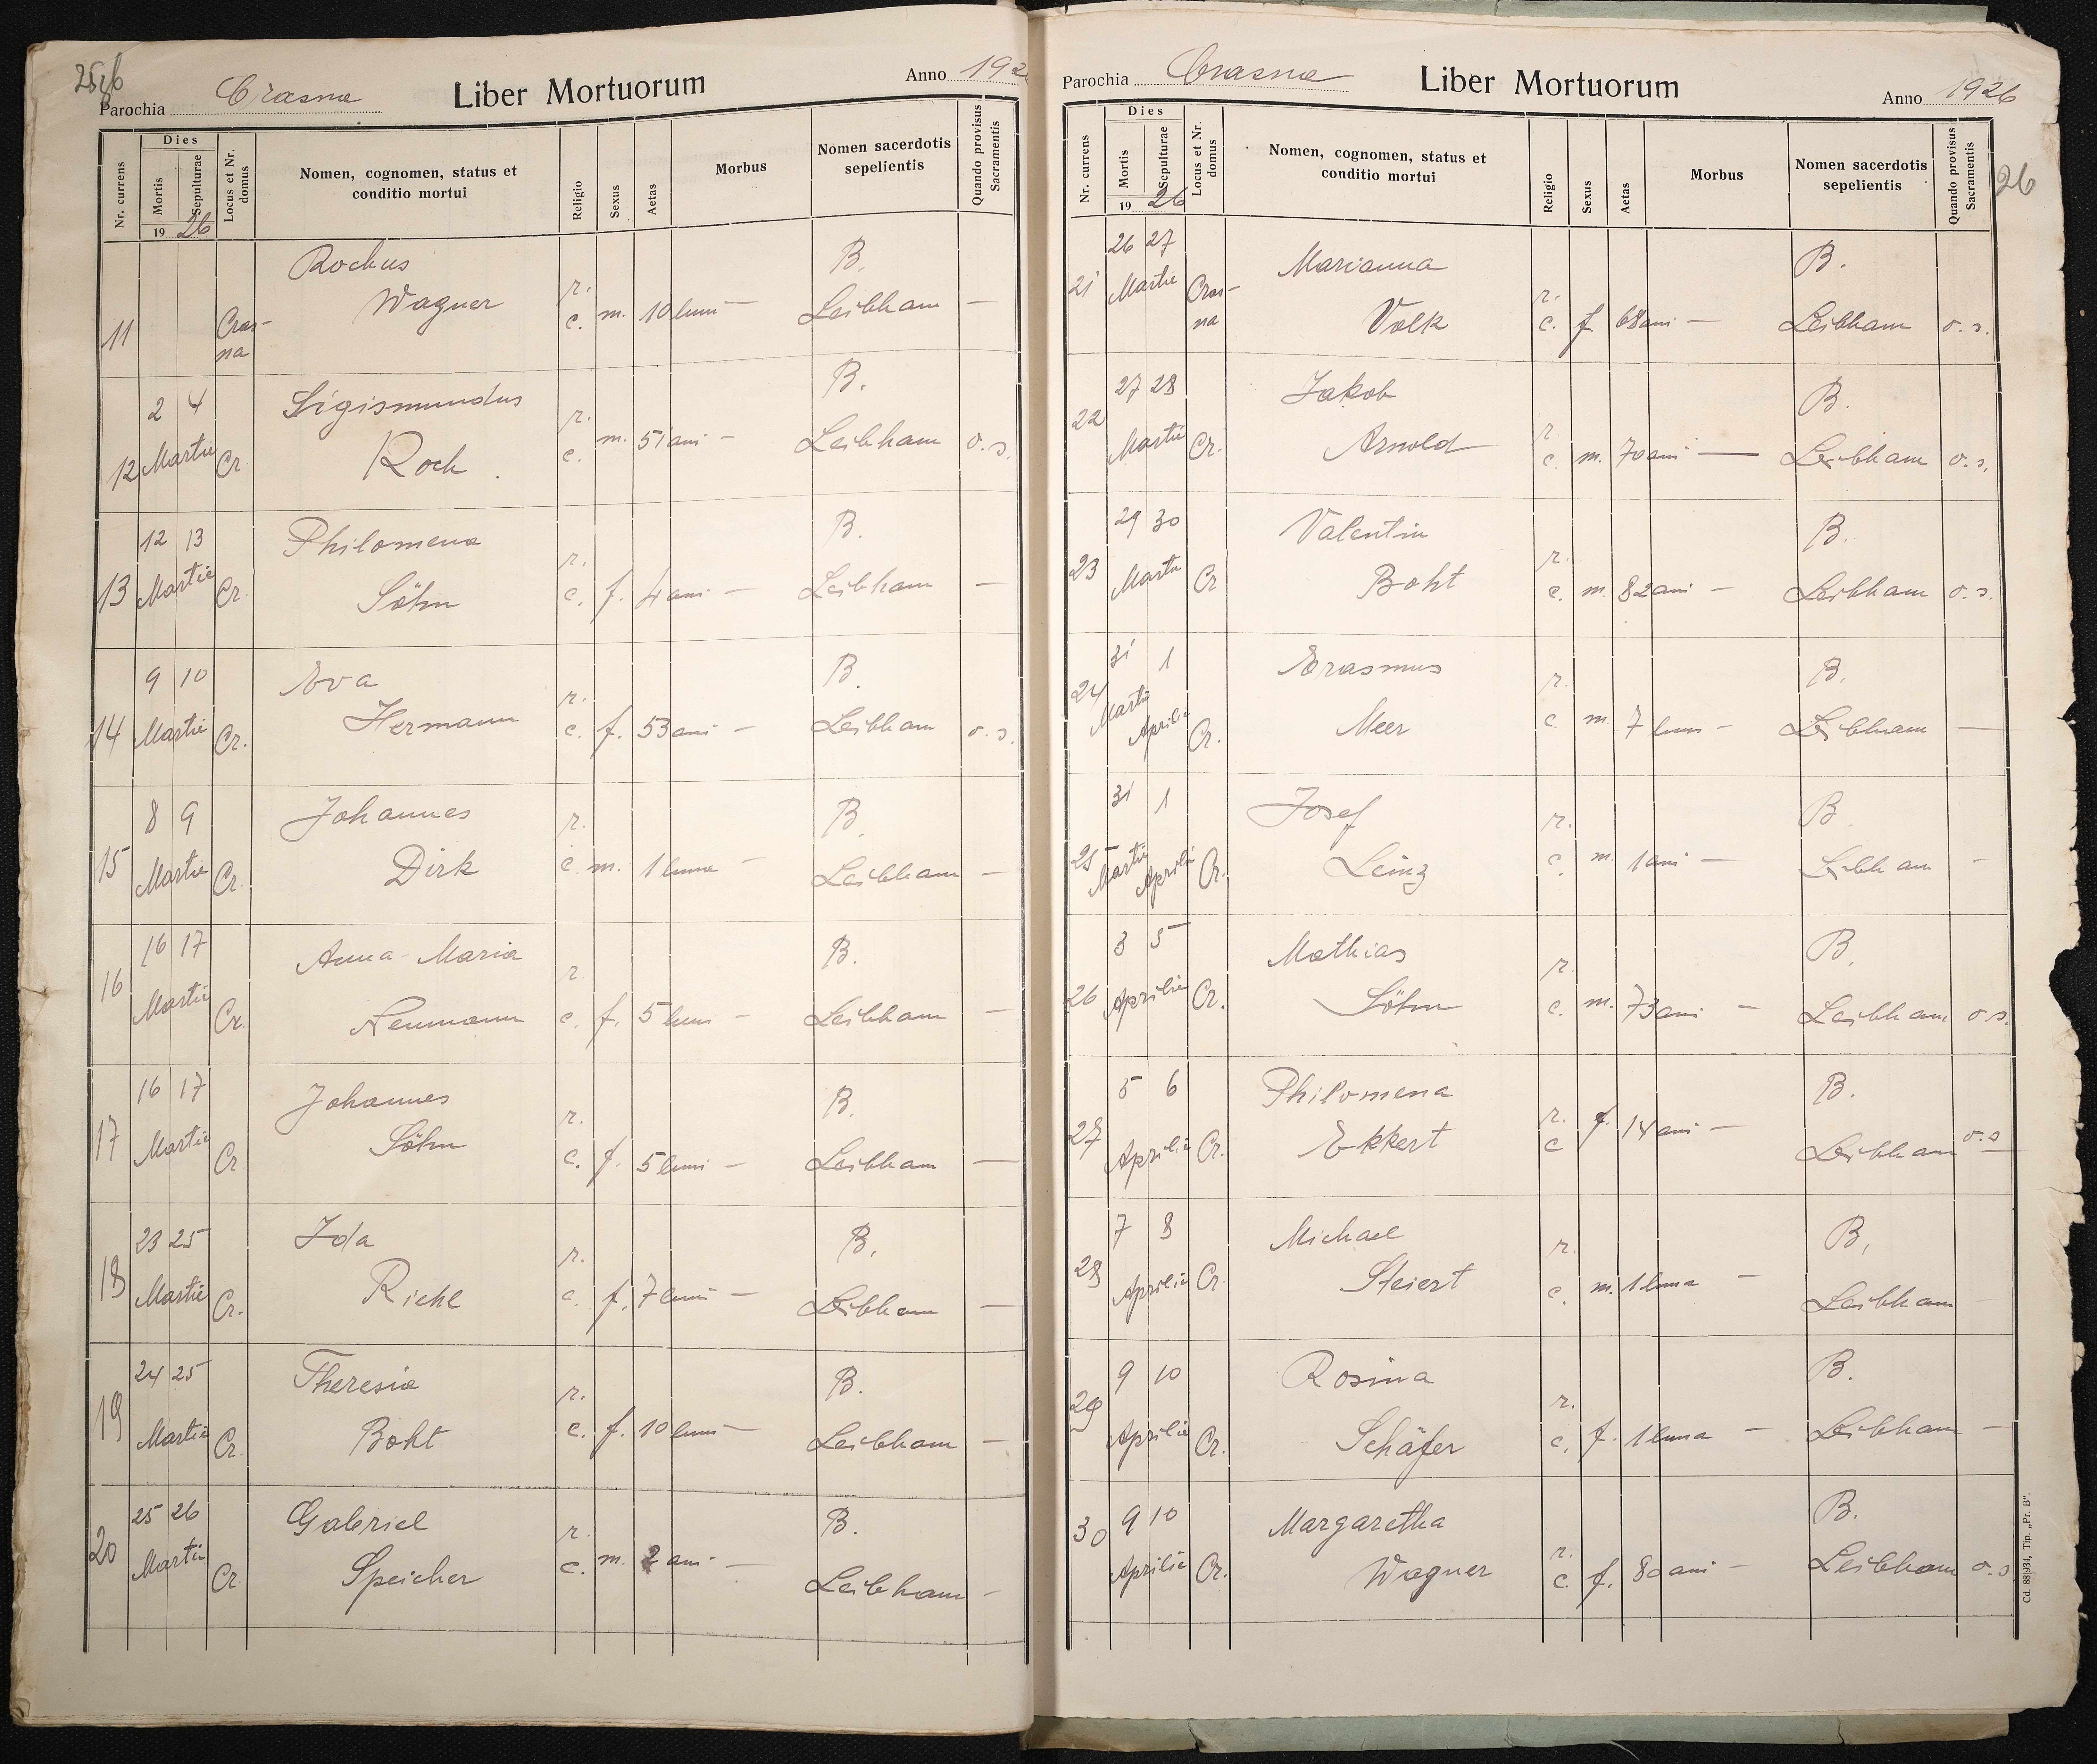 25/b
Parochia Crasna Liber Mortuorum Anno 192
Nr. currens
Dies
Mortis
Sepulturae
19 26
Locus et Nr. domus
Nomen, cognomen, status et
conditio mortui
Religio
Sexus
Aetas
Morbus
Nomen sacerdotis
sepelientis
Quando provisus
Sacramentis
11 Cras-
na
Rochus
Wagner r. c. m. 10 luni — B.
Leibham —
12 2 4
Martie Cr. Sigismundus
Roch r. c. m. 51 ani — B.
Leibham o. s.
13 12 13
Martie Cr. Philomena
Söhn r. c. f. 4 ani — B.
Leibham —
14 9 10
Martie Cr. Eva
Hermann r. c. f. 53 ani — B.
Leibham o. s.
15 8 9
Martie Cr. Johannes
Dirk r. c. m. 1 luna — B.
Leibham —
16 16 17
Martie Cr. Anna-Maria
Neumann r. c. f. 5 luni — B.
Leibham —
17 16 17
Martie Cr. Johannes
Söhn r. c. f. 5 luni — B.
Leibham —
18 23 25
Martie Cr. Ida
Riehl r. c. f. 7 luni — B.
Leibham —
19 24 25
Martie Cr. Theresia
Boht r. c. f. 10 luni — B.
Leibham —
20 25 26
Martie Cr. Gabriel
Speicher r. c. m. 2 ani — B.
Leibham —
Parochia Crasna Liber Mortuorum Anno 1926
26
Nr. currens
Dies
Mortis
Sepulturae
19 26
Locus et Nr. domus
Nomen, cognomen, status et
conditio mortui
Religio
Sexus
Aetas
Morbus
Nomen sacerdotis
sepelientis
Quando provisus
Sacramentis
21 26 27
Martie Cras-
na
Marianna
Volk r. c. f. 68 ani — B.
Leibham o. s.
22 27 28
Martie Cr. Jakob
Arnold r. c. m. 70 ani — B.
Leibham o. s.
23 29 30
Martie Cr. Valentin
Boht r. c. m. 82 ani — B.
Leibham o. s.
24 31 1
Martie Aprilie Cr. Erasmus
Meer r. c. m. 7 luni — B.
Leibham —
25 31 1
Martie Aprilie Cr. Josef
Leinz r. c. m. 1 ani — B.
Leibham -
26 3 5
Aprilie Cr. Mathias
Söhn r. c. m. 73 ani — B.
Leibham o. s.
27 5 6
Aprilie Cr. Philomena
Ekkert r. c. f. 14 ani — B.
Leibham o. s.
28 7 8
Aprilie Cr. Michael
Steiert r. c. m. 1 luna — B.
Leibham
29 9 10
Aprilie Cr. Rosina
Schäfer r. c. f. 1 luna — B.
Leibham —
30 9 10
Aprilie Cr. Margaretha
Wagner r. c. f. 80 ani — B.
Leibham o. s.
Cd. 88934, Tip. „Pr. B".